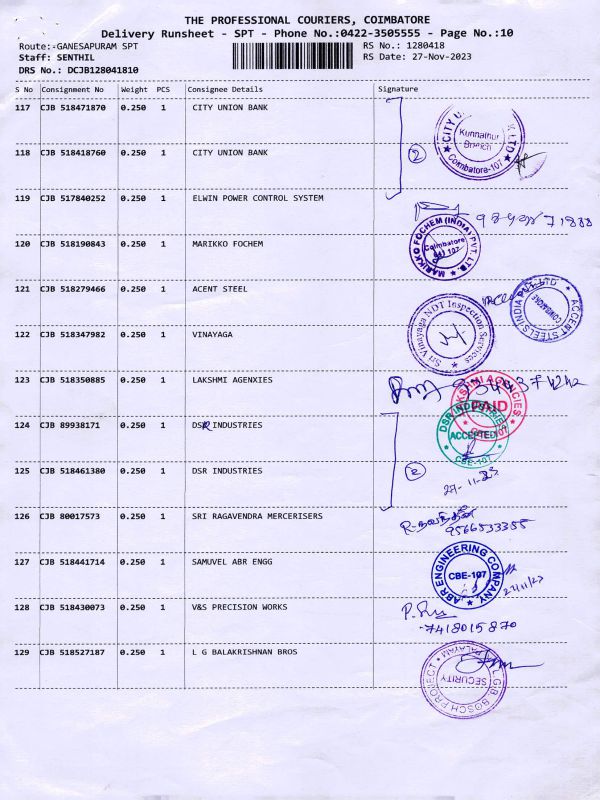 THE PROFESSIONAL COURIERS, COIMBATORE
Delivery Runsheet - SPT - Phone No.:0422-3505555 - Page No.:10
Route:-GANESAPURAM SPT
RS No.: 1280418
Staff: SENTHIL
RS Date: 27-Nov-2023
DRS No.: DCJB128041810
S No Consignment No Weight PCS Consignee Details Signature
117 CJB 518471870 0.250 1 CITY UNION BANK
Kunnathur Branch
Coimbatore-107
2
118 CJB 518418760 0.250 1 CITY UNION BANK
119 CJB 517840252 0.250 1 ELWIN POWER CONTROL SYSTEM
120 CJB 518190843 0.250 1 MARIKKO FOCHEM
MARIKKO FOCHEM (INDIA) PVT. LTD.
Coimbatore
641 107
121 CJB 518279466 0.250 1 ACENT STEEL
ACCENT STEELS INDIA PVT LTD
COIMBATORE
122 CJB 518347982 0.250 1 VINAYAGA
Sri Vinayaga NDT Inspection Services
123 CJB 518350885 0.250 1 LAKSHMI AGENXIES
LAKSHMI AGENCIES
PAID
124 CJB 89938171 0.250 1 DSR INDUSTRIES
DSR INDUSTRIES
ACCEPTED
CBE-107
2
125 CJB 518461380 0.250 1 DSR INDUSTRIES
27-11-23
126 CJB 80017573 0.250 1 SRI RAGAVENDRA MERCERISERS
9566533355
127 CJB 518441714 0.250 1 SAMUVEL ABR ENGG
ABR ENGINEERING COMPANY
CBE-107
27/11/23
128 CJB 518430073 0.250 1 V&S PRECISION WORKS
7418015870
129 CJB 518527187 0.250 1 L G BALAKRISHNAN BROS
L.G.B. BOSCH PROJECT
SECURITY